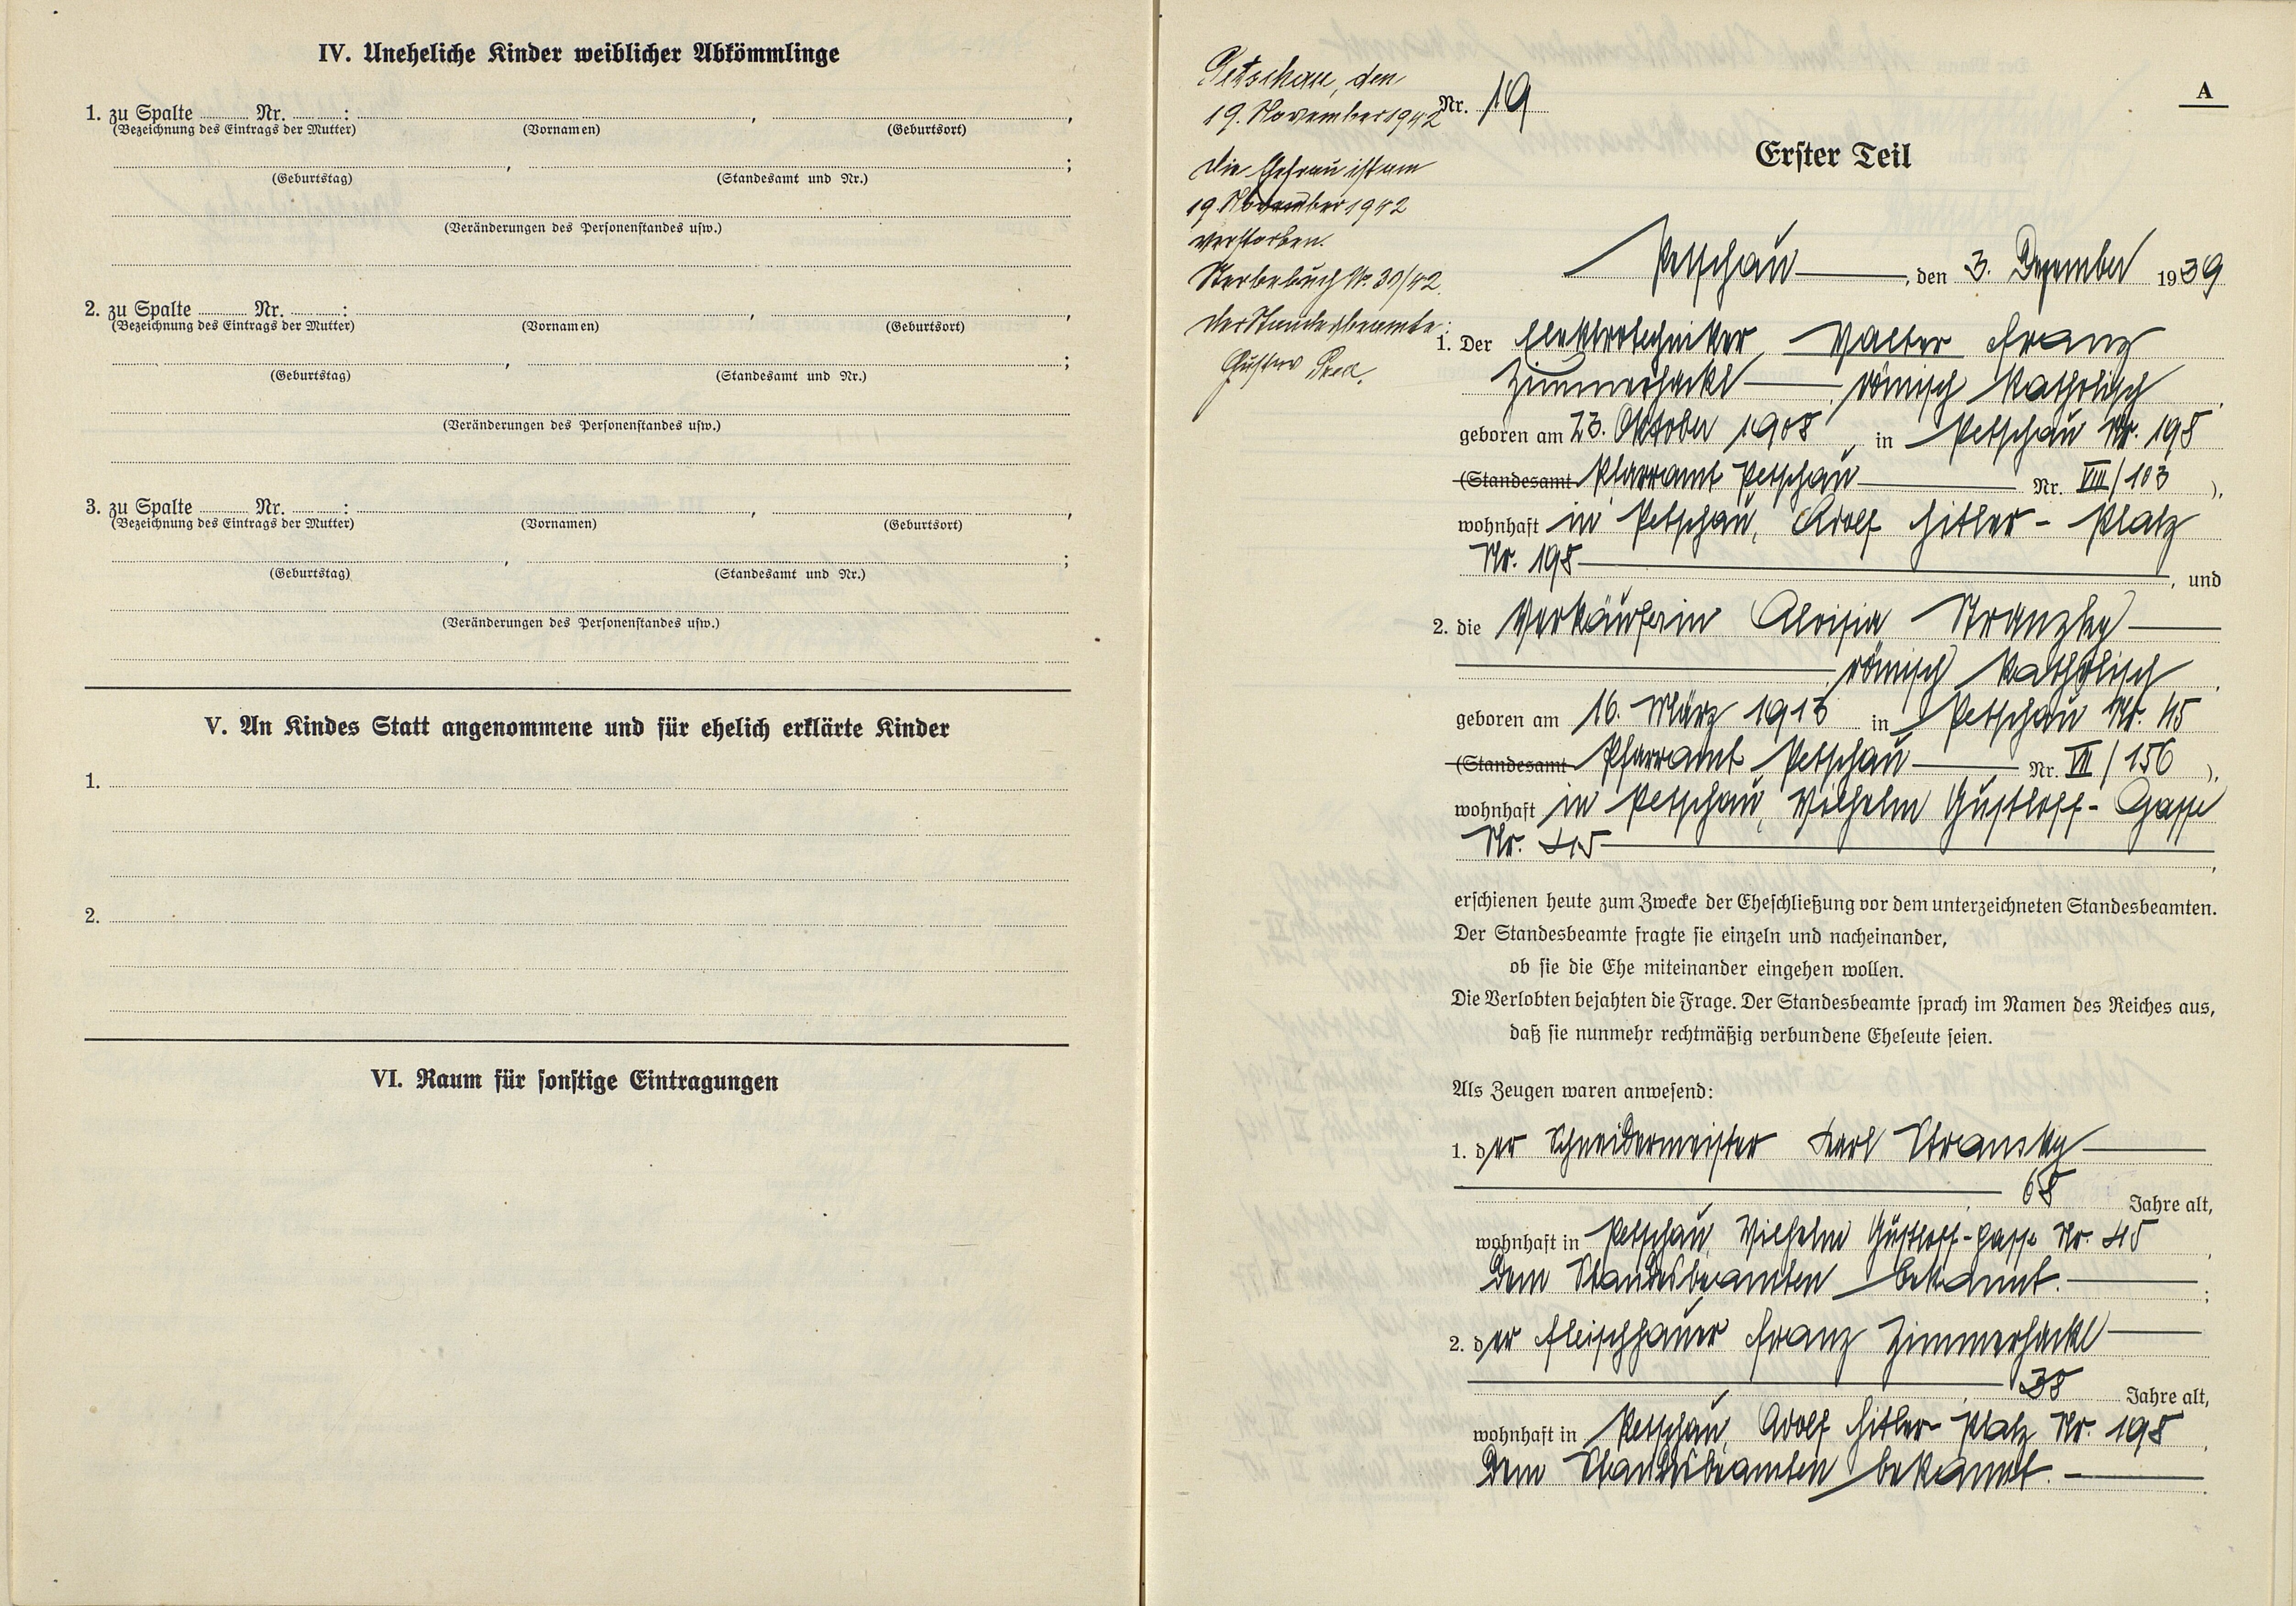 IV. Uneheliche Kinder weiblicher Abkömmlinge
1. zu Spalte ........ Nr. ........:
(Bezeichnung des Eintrags der Mutter) (Vornamen) , (Geburtsort) ,
(Geburtstag) , (Standesamt und Nr.) ;
(Veränderungen des Personenstandes usw.)
2. zu Spalte ........ Nr. ........:
(Bezeichnung des Eintrags der Mutter) (Vornamen) , (Geburtsort) ,
(Geburtstag) , (Standesamt und Nr.) ;
(Veränderungen des Personenstandes usw.)
3. zu Spalte ........ Nr. ........:
(Bezeichnung des Eintrags der Mutter) (Vornamen) , (Geburtsort) ,
(Geburtstag) , (Standesamt und Nr.) ;
(Veränderungen des Personenstandes usw.)
V. An Kindes Statt angenommene und für ehelich erklärte Kinder
1.
2.
VI. Raum für sonstige Eintragungen
Petschau, den
19. November 1942
Die Ehefrau ist am
19. November 1942
verstorben.
Sterbebuch Nr. 30/42.
Der Standesbeamte:
Gustav
A
Nr. 19
Erster Teil
Petschau, den 3. Dezember 1939
1. Der Elektrotechniker, Walter Franz
Zimmerhackl, römisch katholisch,
geboren am 23. Oktober 1908, in Petschau Nr. 198
(Standesamt Pfarramt Petschau Nr. VIII/103 ),
wohnhaft in Petschau, Adolf Hitler - Platz
Nr. 198, und
2. die Verkäuferin Aloisia Stransky
römisch katholisch,
geboren am 16. März 1913 in Petschau Nr. 45
(Standesamt Pfarramt Petschau Nr. VII/156 ),
wohnhaft in Petschau, Wilhelm Gustloff - Gasse
Nr. 45,
erschienen heute zum Zwecke der Eheschließung vor dem unterzeichneten Standesbeamten.
Der Standesbeamte fragte sie einzeln und nacheinander,
ob sie die Ehe miteinander eingehen wollen.
Die Verlobten bejahten die Frage. Der Standesbeamte sprach im Namen des Reiches aus,
daß sie nunmehr rechtmäßig verbundene Eheleute seien.
Als Zeugen waren anwesend:
1. der Schneidermeister Karl Stransky
68 Jahre alt,
wohnhaft in Petschau, Wilhelm Gustloff-gasse Nr. 45,
dem Standesbeamten bekannt. ;
2. der Fleischhauer Franz Zimmerhackl
38 Jahre alt,
wohnhaft in Petschau, Adolf Hitler-Platz Nr. 198,
dem Standesbeamten bekannt.